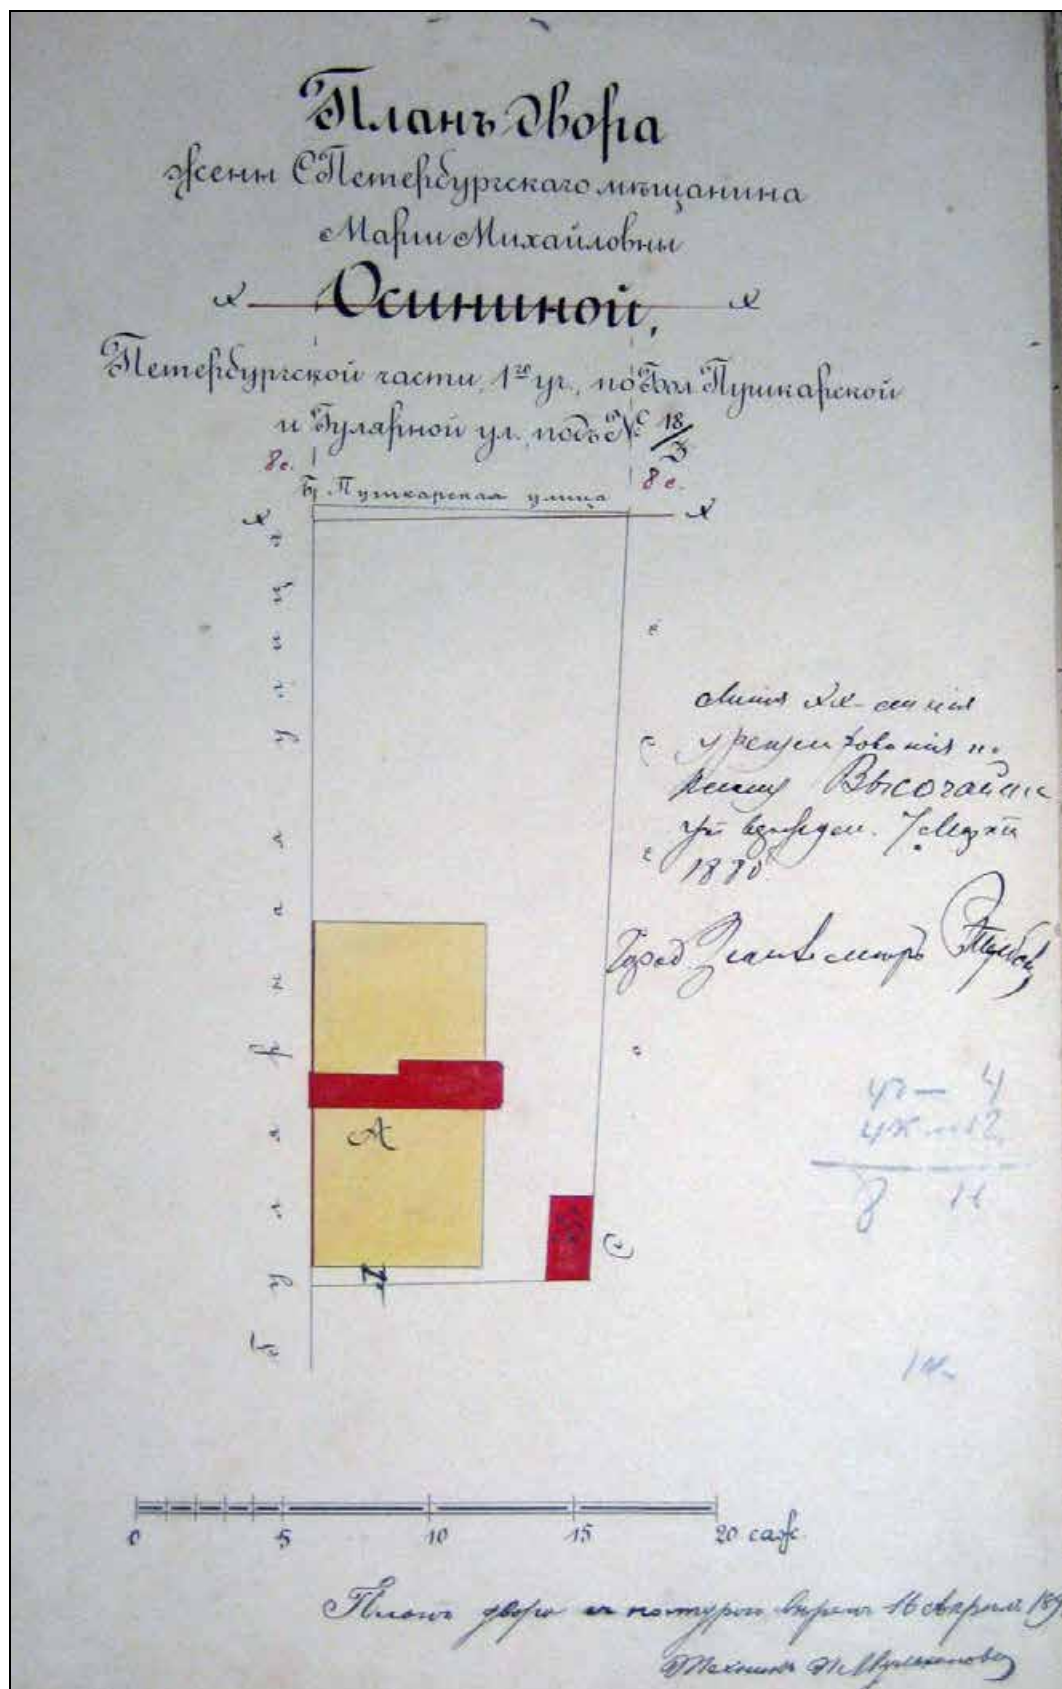 Планъ двора
жены СПетербургскаго мѣщанина
Маріи Михайловны
х Осининой, х
Петербургской части, 1го уч., по Бол. Пушкарской
и Гулярной ул. подъ № 18/3
8 с. 8 с.
Б. Пушкарская улица
х х
Гулярная улица
с
с
с
с
С
Линія хх - линія
урегулированія по
плану Высочайше
утвержден. 7 Марта
1880
Город. Землемѣръ
А
Б
Г
8 11
0 5 10 15 20 саж.
Планъ двора съ натурою вѣренъ 16 Апрѣля 189
Техникъ